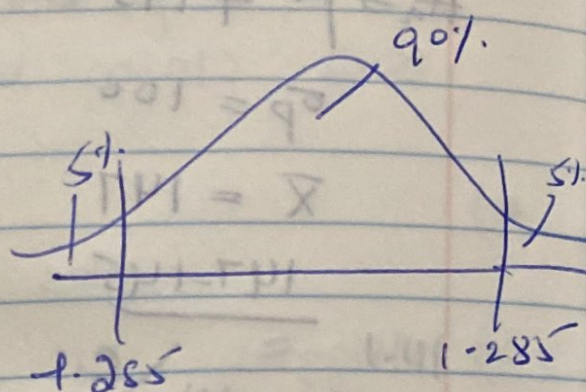 90%.
5%
5%
-1.285
1.285